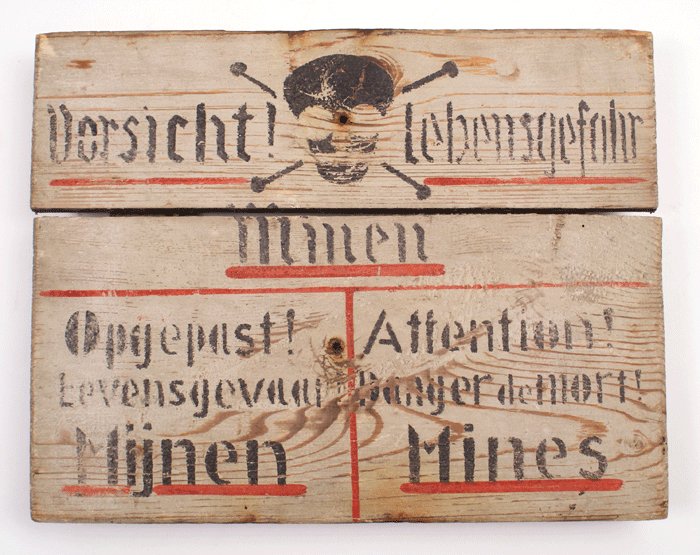 Vorsicht! Lebensgefahr
Minen
Opgepast!
Levensgevaar
Mijnen
Attention!
Danger de mort!
Mines